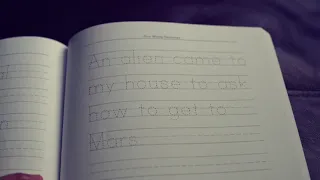 An alien came to
my house to ask
how to get to
Mars